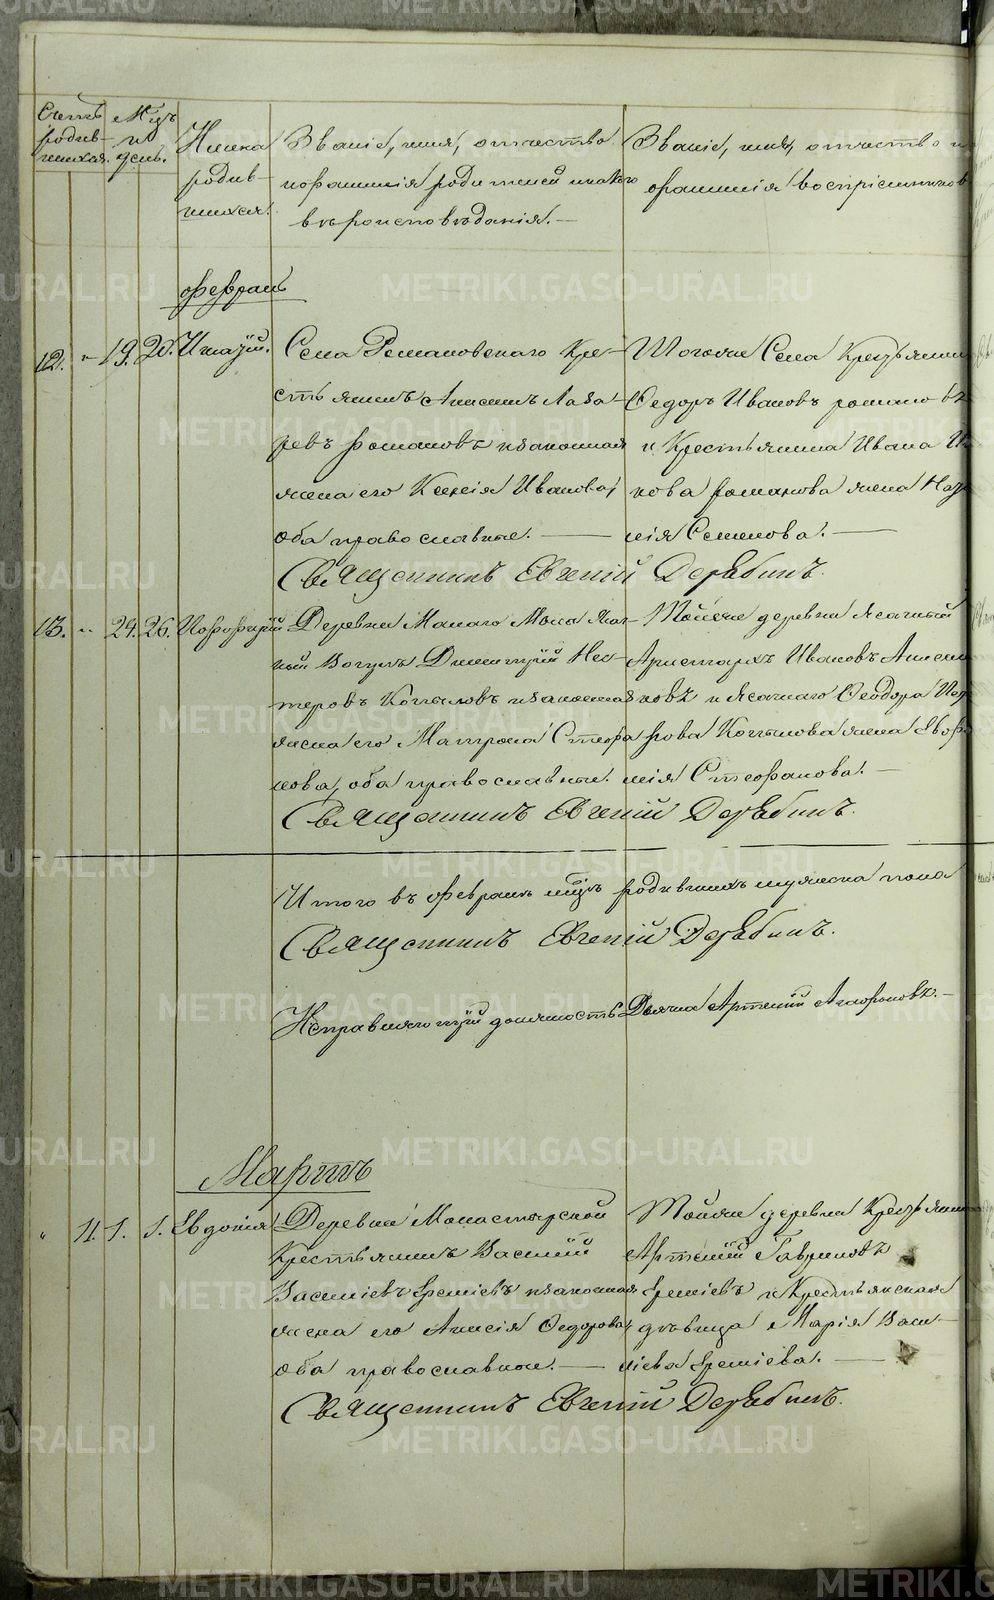 Счетъ родив- шихся.
Мцъ и день.
Имена родив- шихся.
Званіе, имя, отчество и фамилія родителей и какого вѣроисповѣданія.—
Званіе, имя, отчество и фамилія воспріемниковъ
Февраль
12. " 19. 20. Игнатій.
Села Романовскаго Кре-
стьянинъ Анисимъ Лаза-
ревъ Романовъ и законная
жена его Ксенія Иванова,
оба православные. —
Тогоже Села Крестьянинъ
Ѳедоръ Ивановъ Романовъ
и Крестьянина Ивана
нова Романова жена
нія Семенова. —
Священникъ Евгеній Дерябинъ.
13. " 24. 26. Порфирій
Деревни Малаго Мола Яса-
ный Вогулъ Димитрій Нес-
теровъ Копыловъ и законная
жена его Матрона Стефа-
нова, оба православные.
Тойже деревни Ясачный
Аристархъ Ивановъ
новъ и Ясачнаго Ѳеодора
рова Копылова жена Евфи-
мія Стефанова. —
Священникъ Евгеній Дерябинъ.
Итого въ февралѣ мцѣ родившихся мужеска пола
Священникъ Евгеній Дерябинъ.
Исправляющій должность Дьячка Артемій Агафоновъ. —
Мартъ
" 11. 1. 1. Евдокія
Деревни Монастырской
Крестьянинъ Василій
Васильевъ Ереміевъ и законная
жена его Анисія Ѳедорова,
оба православные. —
Тойже деревни Крестьянинъ
Артемій Гавриловъ
Ереміевъ и Крестьянская
дѣвица Марія Васи-
ліева Ереміева. —
Священникъ Евгеній Дерябинъ.
METRIKI.GASO-URAL.RU